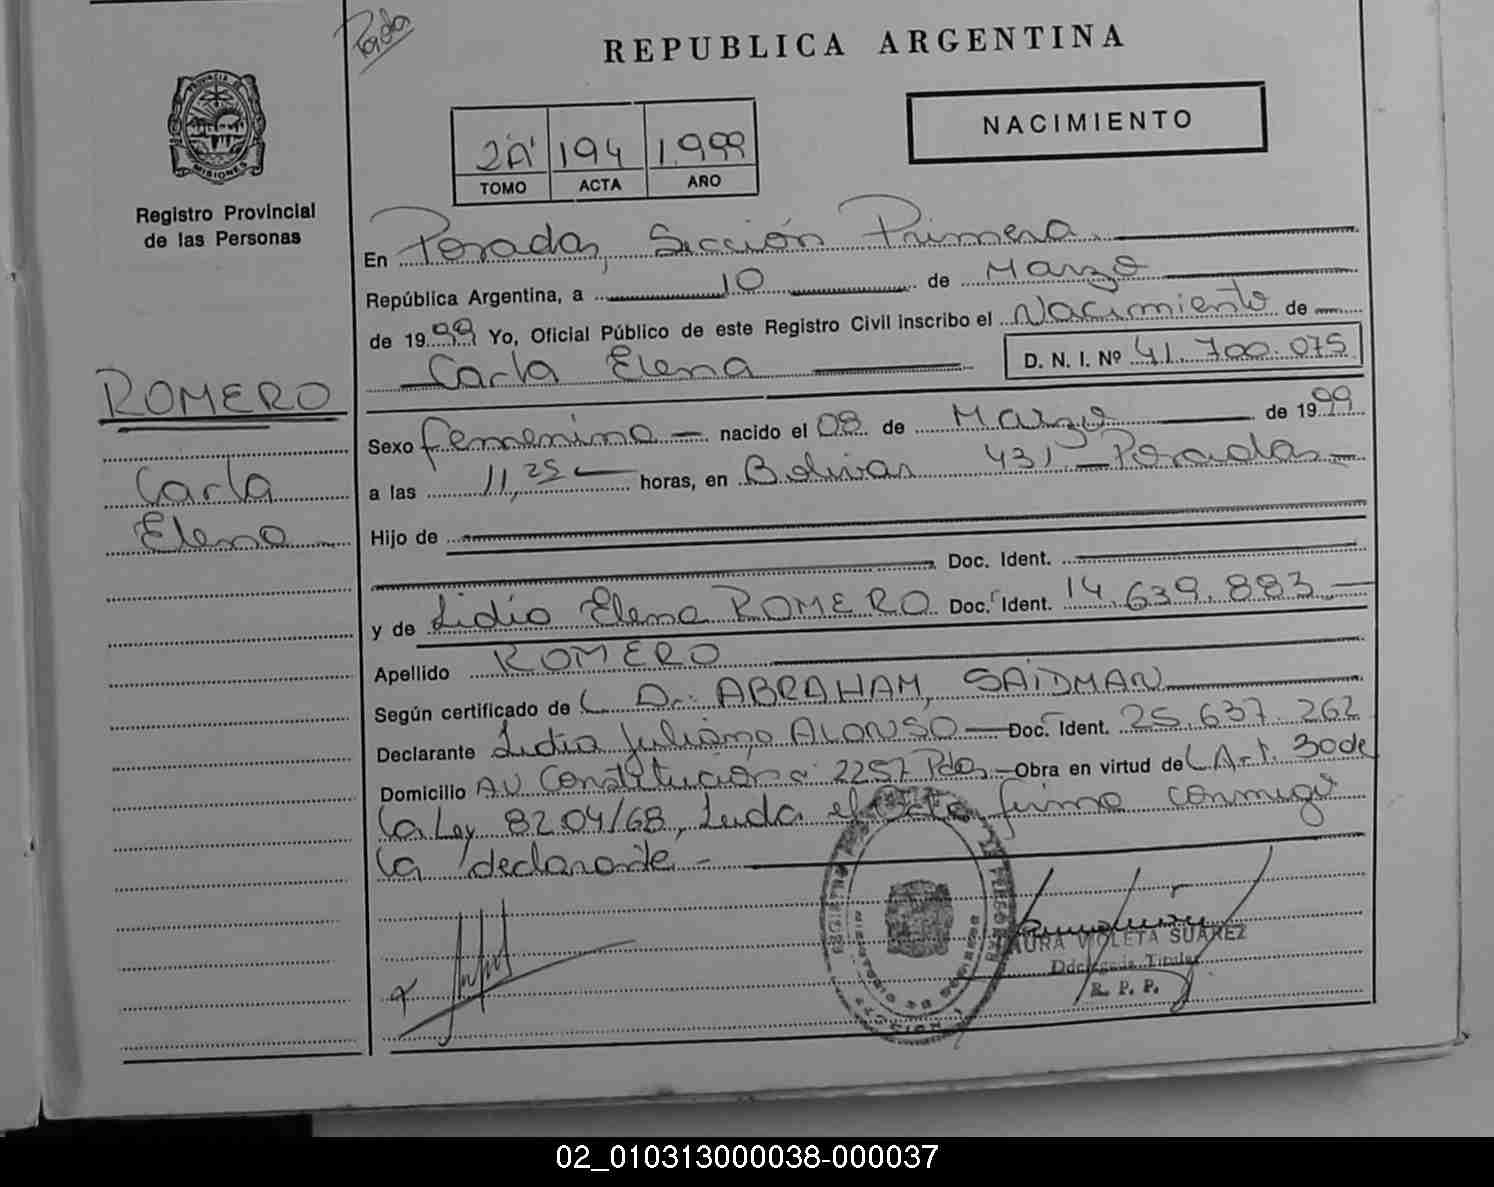 REPUBLICA ARGENTINA
PROVINCIA DE
MISIONES
Registro Provincial
de las Personas
2A' 194 1.999
TOMO ACTA AÑO
NACIMIENTO
En Posadas, Sección Primera
República Argentina, a 10 de Marzo
de 1999 Yo, Oficial Público de este Registro Civil inscribo el Nacimiento de
Carla Elena D. N. I. Nº 41.700.075
ROMERO
Carla
Elena
Sexo femenino nacido el 08 de Marzo de 1999
a las 11,25 horas, en Bolivar 431 Posadas
Hijo de
Doc. Ident.
y de Lidia Elena ROMERO Doc. Ident. 14.639.883
Apellido ROMERO
Según certificado de Dr. ABRAHAM, SAIDMAN
Declarante Lidia Juliana ALONSO Doc. Ident. 25.637.262
Domicilio Av Constitución 2257 Pdas Obra en virtud de Art. 30 de
la Ley 8204/68, Leída el acta firma conmigo
la declarante
LAURA VIOLETA SUAREZ
Delegada Titular
R. P. P.
02_010313000038-000037